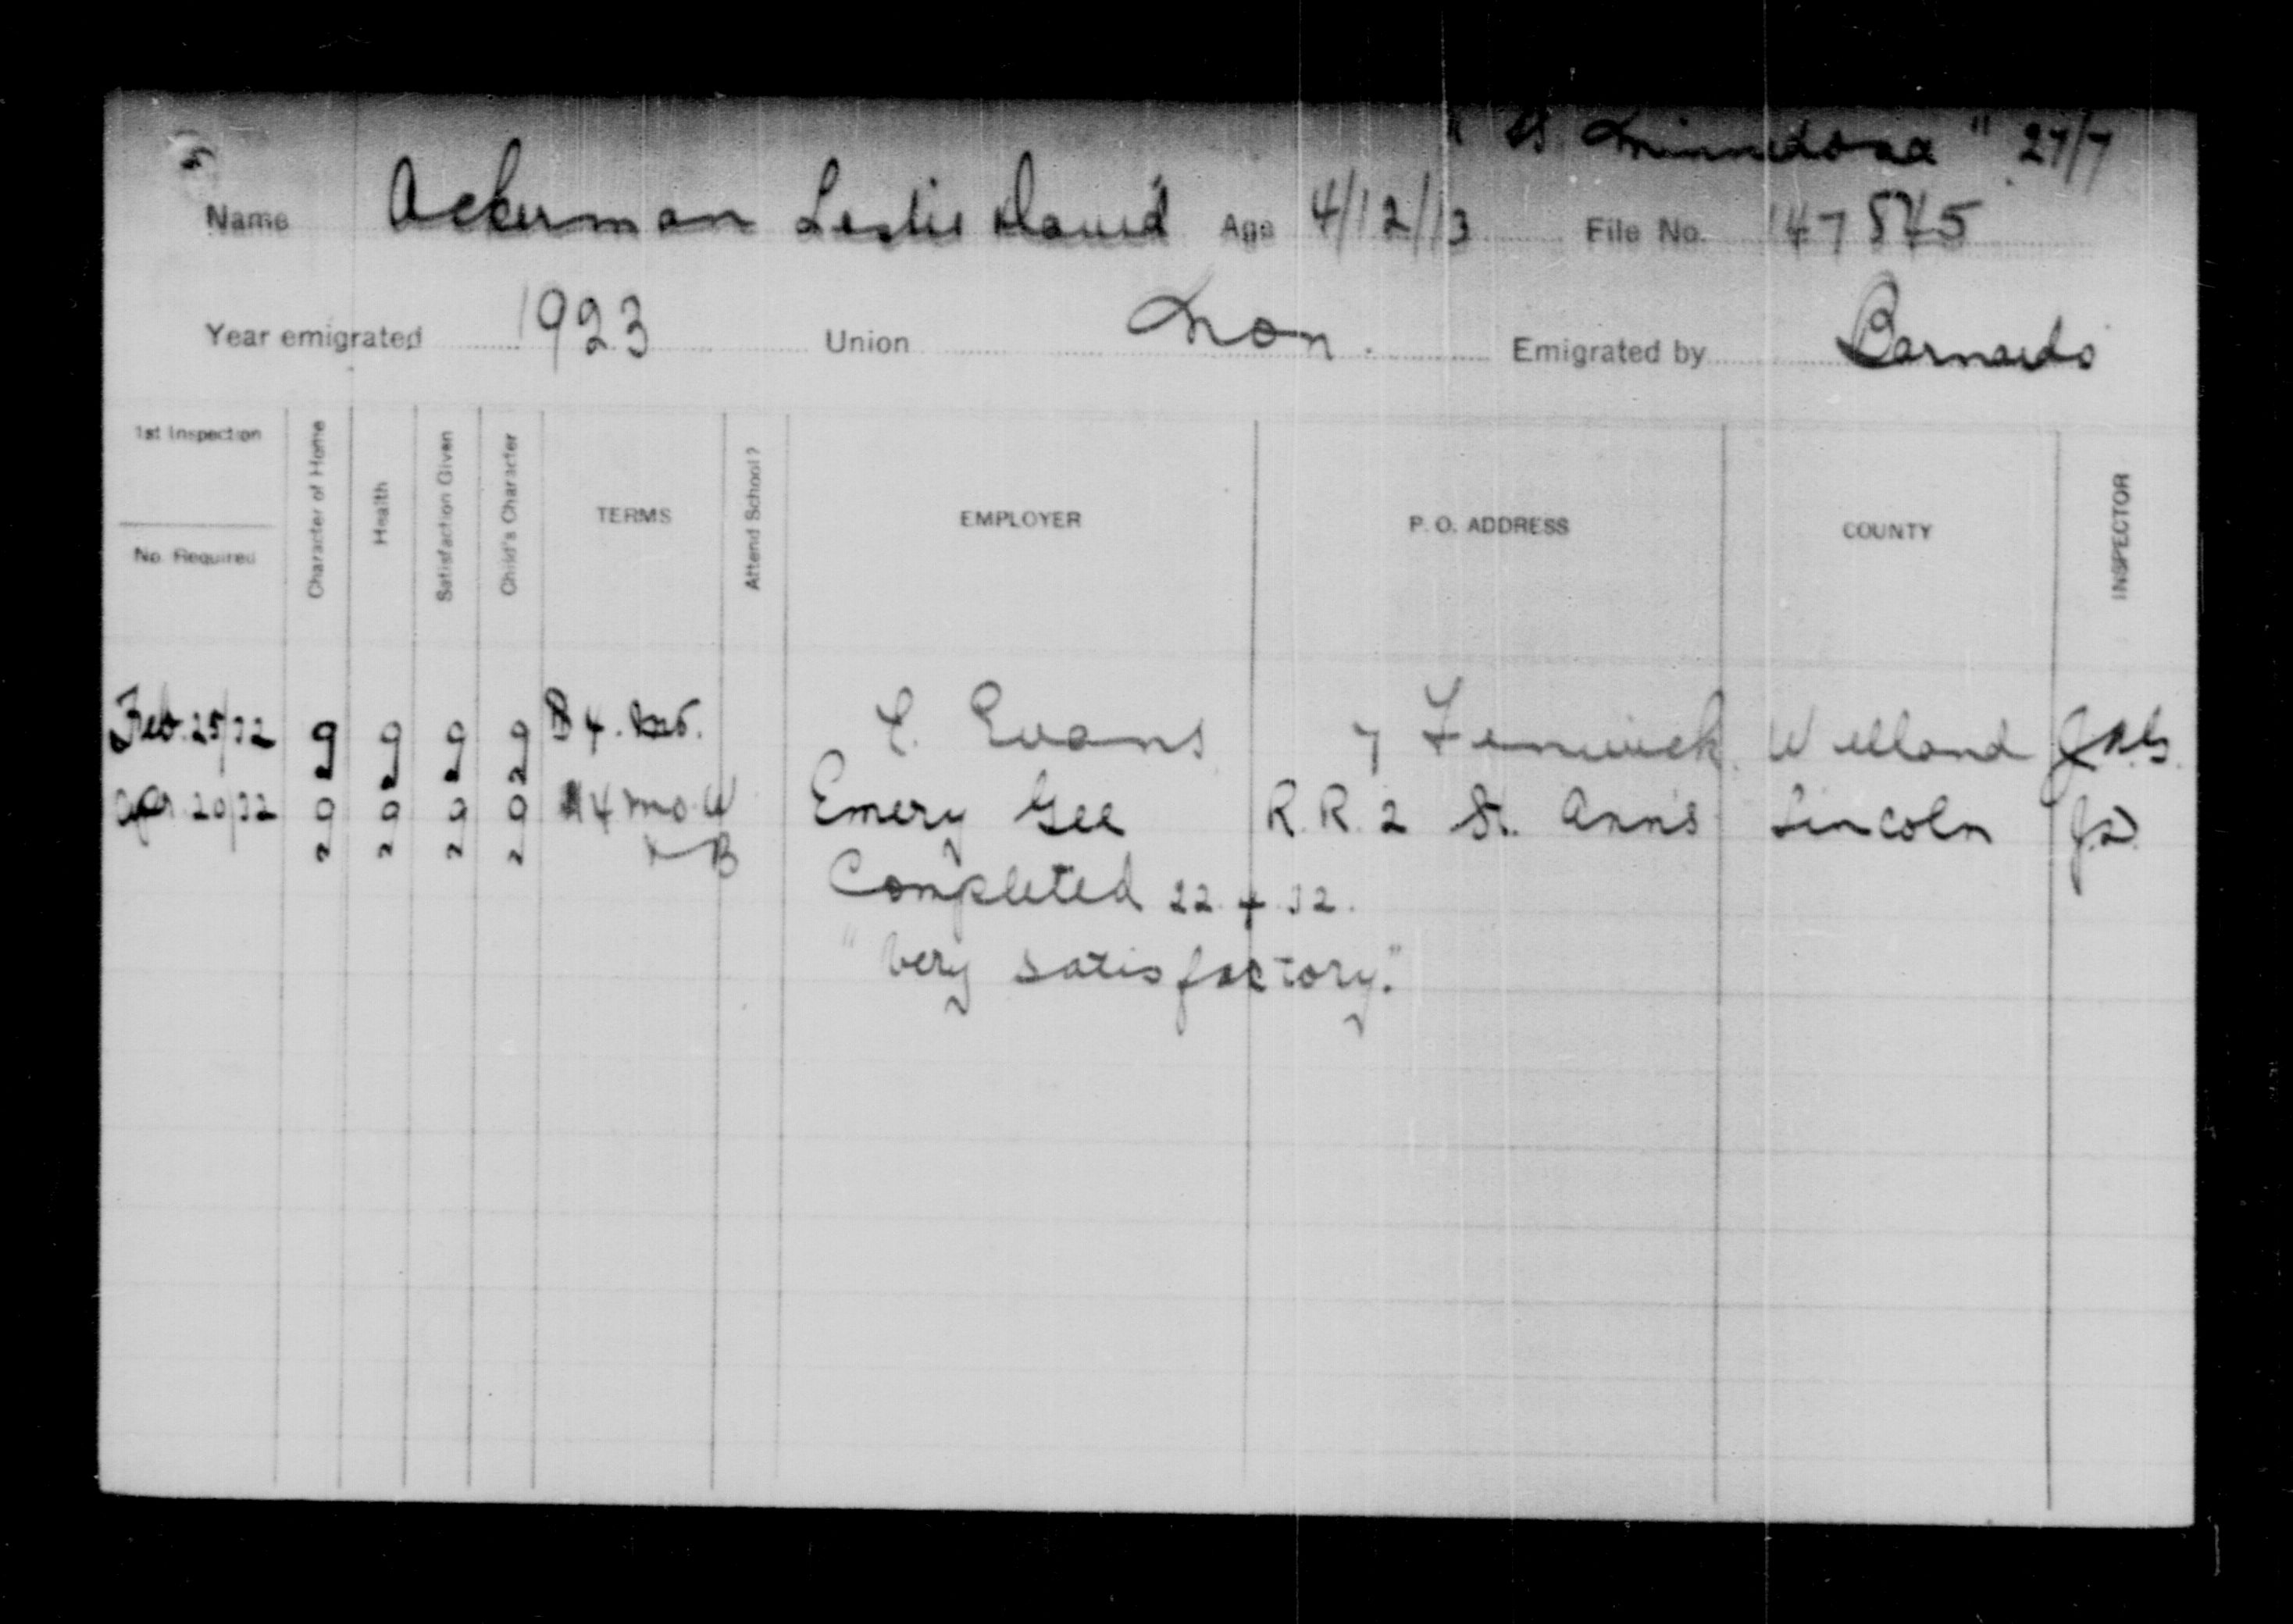 "SS Minnedosa" 27/7
Name Ackerman Leslie David Age 4/12/13 File No. 147545
Year emigrated 1923 Union Non. Emigrated by Barnardo
1st Inspection
No. Required
Character of Home
Health
Satisfaction Given
Child's Character
TERMS
Attend School?
EMPLOYER
P. O. ADDRESS
COUNTY
INSPECTOR
Feb. 25/32 g g g g 4. Evans Fenwick. Welland
Apr. 20/32 g g g g 4 mo W Emery Gee R.R. 2 St. Anns Lincoln
B
Completed 22.4.32.
"Very satisfactory."